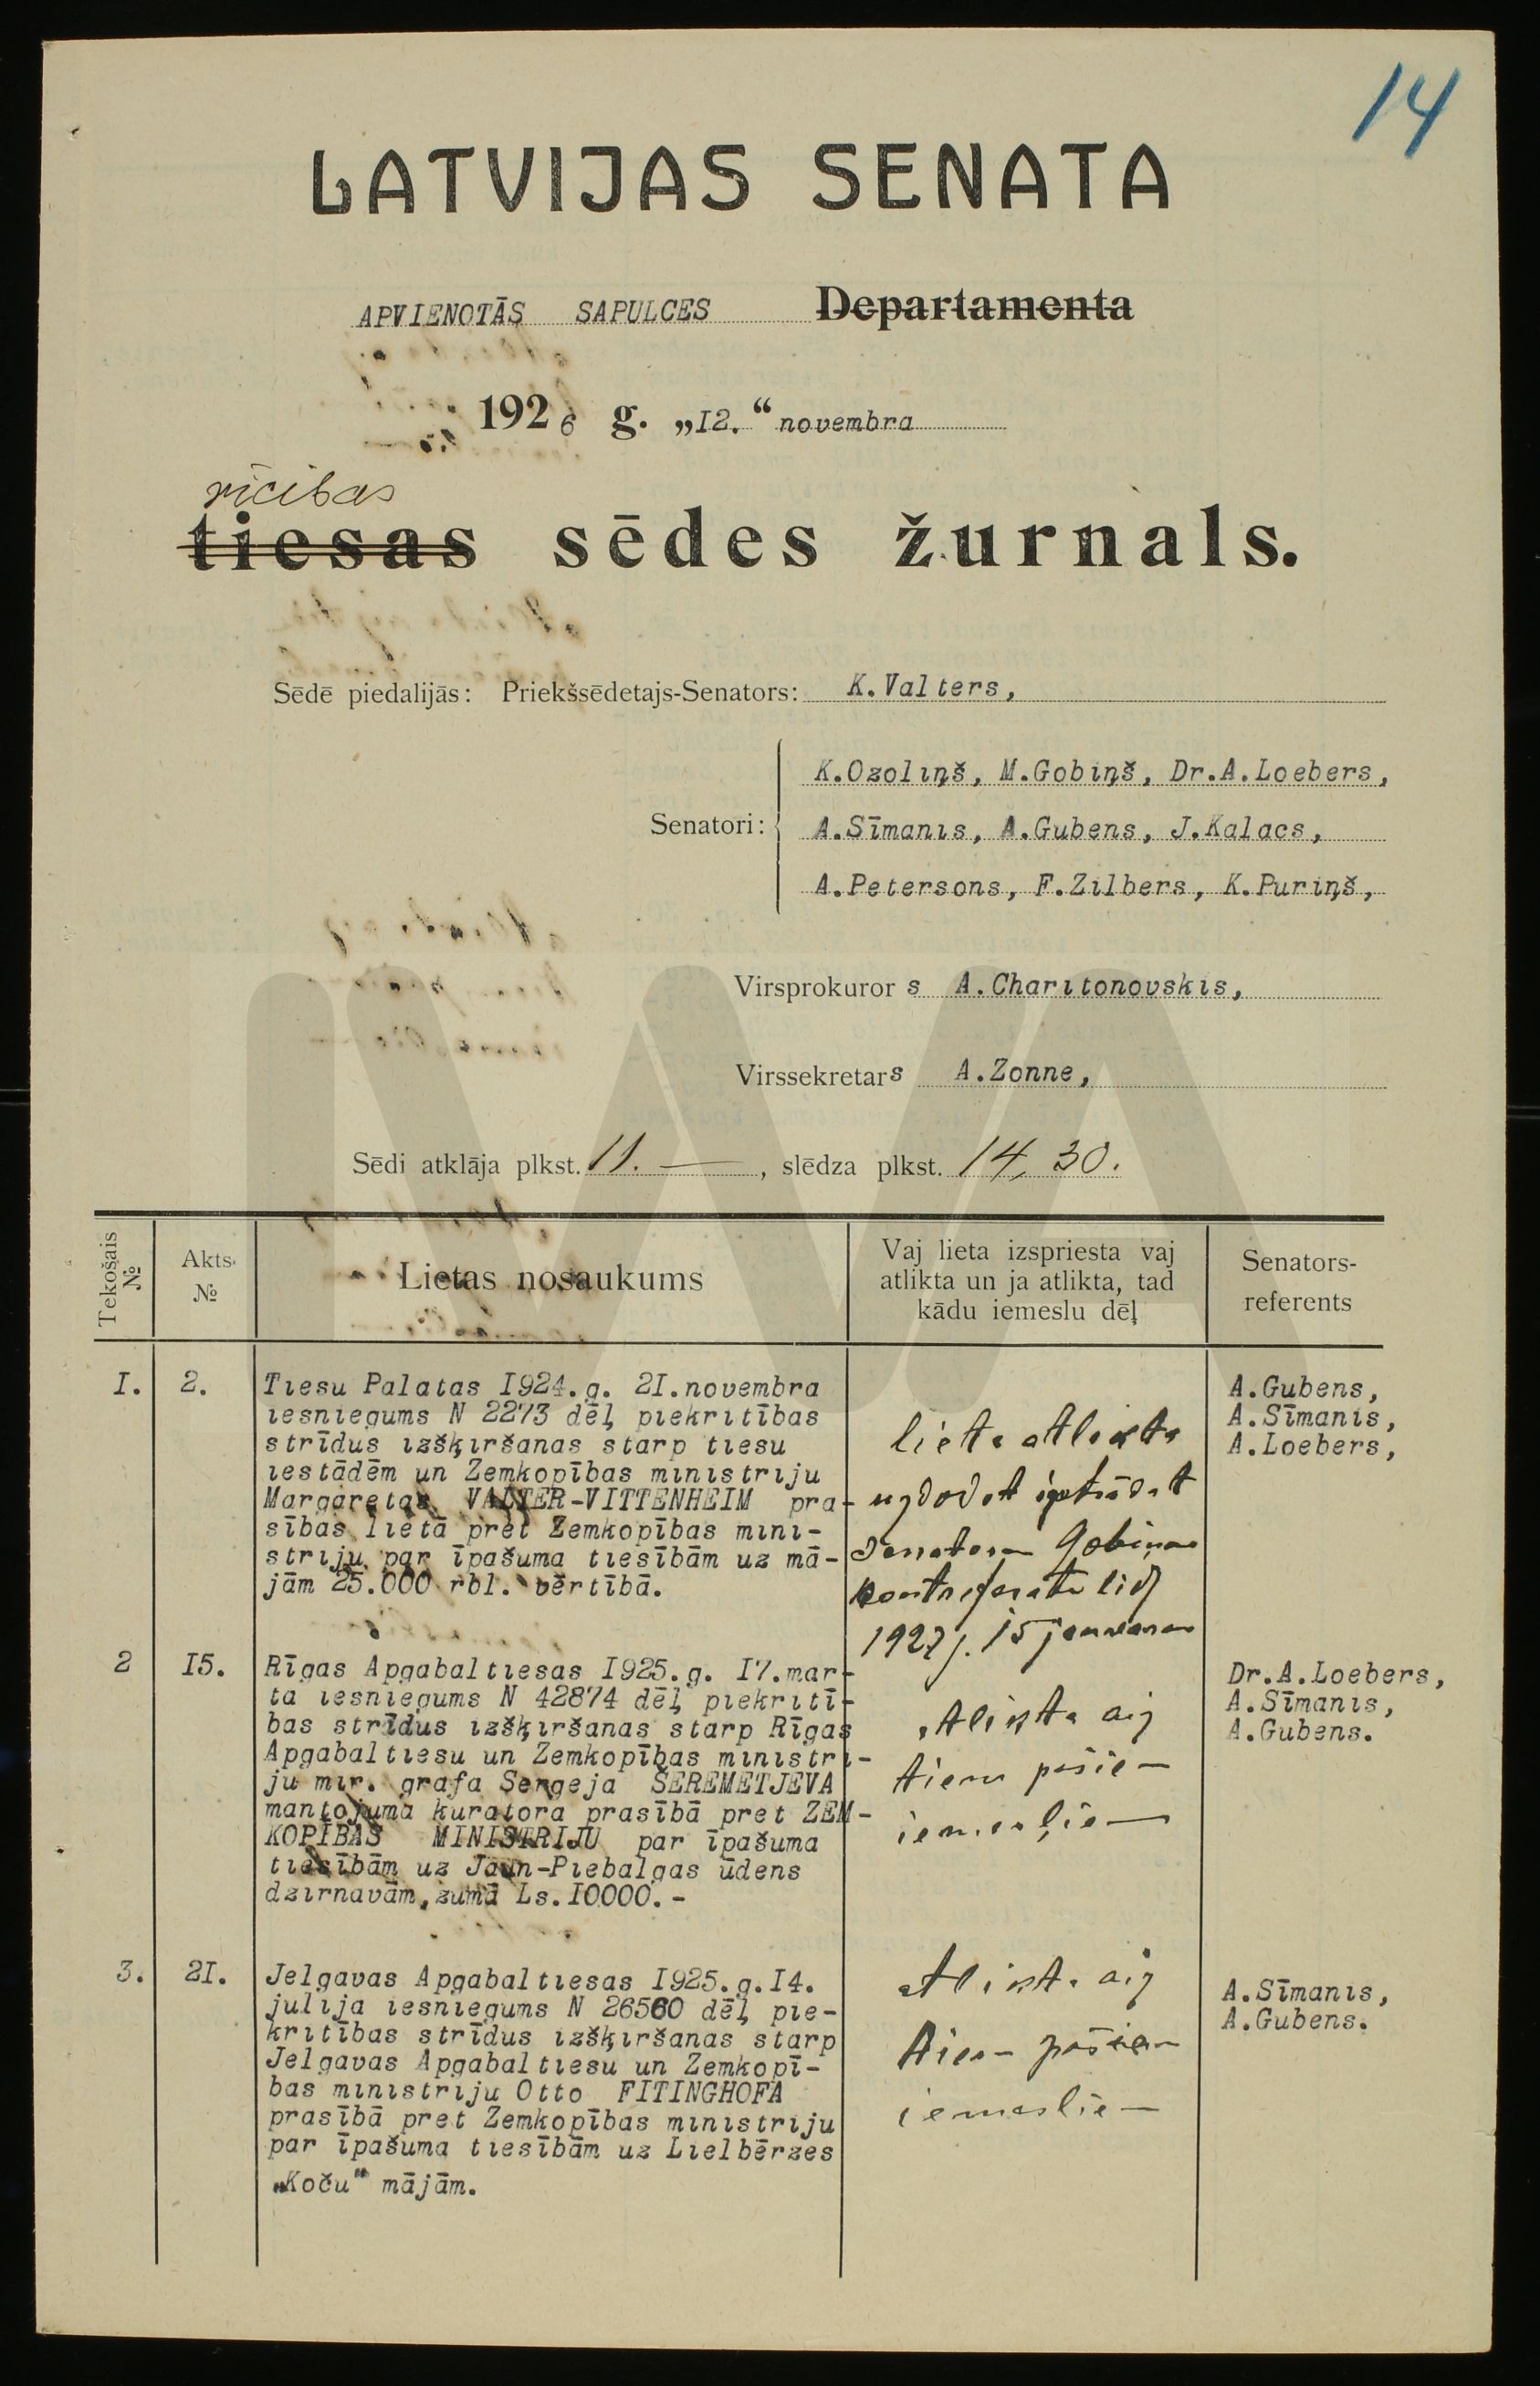 14
LATVIJAS SENATA
APVIENOTĀS SAPULCES Departamenta
1926 g. „12.“ novembra
rīcibas
tiesas sēdes žurnals.
Sēdē piedalijās: Priekšsēdetajs-Senators: K.Valters,
Senatori:
K.Ozoliņš, M.Gobiņš, Dr.A.Loebers,
A.Sīmanis, A.Gubens, J.Kalacs,
A.Petersons, F.Zilbers, K.Puriņš,
Virsprokurors A.Charitonovskis,
Virssekretars A.Zonne,
Sēdi atklāja plkst. 11. —, slēdza plkst. 14,30.
Tekošais №
Akts. №
Lietas nosaukums
Vaj lieta izspriesta vaj
atlikta un ja atlikta, tad
kādu iemeslu dēļ
Senators-
referents
1.
2.
Tiesu Palatas 1924.g. 21.novembra
iesniegums N 2273 dēļ piekritības
strīdus izšķiršanas starp tiesu
iestādēm un Zemkopības ministriju
Margaretas VALTER-VITTENHEIM pra-
sības lietā pret Zemkopības mini-
striju par īpašuma tiesībām uz mā-
jām 25.000 rbl. vērtībā.
lieta atlikta
uzdodot izstrādāt
senatoram Gobiņam
kontreferatu līdz
1927 g. 15 janvaram
A.Gubens,
A.Sīmanis,
A.Loebers,
2
15.
Rīgas Apgabaltiesas 1925.g. 17.mar-
ta iesniegums N 42874 dēļ piekrití-
bas strīdus izšķiršanas starp Rīgas
Apgabaltiesu un Zemkopības ministri-
ju mir. grafa Sergeja ŠEREMETJEVA
mantojuma kuratora prasībā pret ZEM-
KOPĪBAS MINISTRIJU par īpašuma
tiesībām uz Jaun-Piebalgas ūdens
dzirnavām, zumā Ls.10000.-
atlikta aiz
tiem pašiem
iemesliem
Dr.A.Loebers,
A.Sīmanis,
A.Gubens.
3.
21.
Jelgavas Apgabaltiesas 1925.g.14.
julija iesniegums N 26560 dēļ pie-
kritības strīdus izšķiršanas starp
Jelgavas Apgabaltiesu un Zemkopī-
bas ministriju Otto FITINGHOFA
prasībā pret Zemkopības ministriju
par īpašuma tiesībām uz Lielbērzes
„Koču" mājām.
atlikta aiz
tiem pašiem
iemesliem
A.Sīmanis,
A.Gubens.